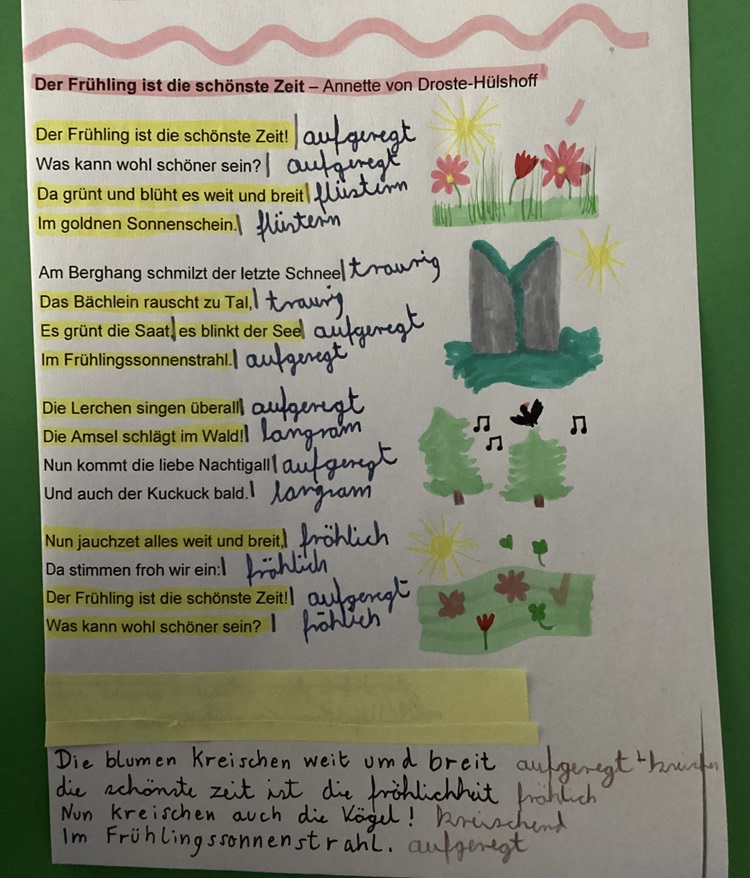 Der Frühling ist die schönste Zeit – Annette von Droste-Hülshoff
Der Frühling ist die schönste Zeit! | aufgeregt
Was kann wohl schöner sein? | aufgeregt
Da grünt und blüht es weit und breit | flüstern
Im goldnen Sonnenschein. | flüstern
Am Berghang schmilzt der letzte Schnee | traurig
Das Bächlein rauscht zu Tal, | traurig
Es grünt die Saat, | es blinkt der See | aufgeregt
Im Frühlingssonnenstrahl. | aufgeregt
Die Lerchen singen überall | aufgeregt
Die Amsel schlägt im Wald! | langsam
Nun kommt die liebe Nachtigall | aufgeregt
Und auch der Kuckuck bald. | langsam
Nun jauchzet alles weit und breit, | fröhlich
Da stimmen froh wir ein: | fröhlich
Der Frühling ist die schönste Zeit! | aufgeregt
Was kann wohl schöner sein? | fröhlich
Die blumen Kreischen weit und breit aufgeregt +
die schönste zeit ist die fröhlichheit fröhlich
Nun kreischen auch die Vögel! kreischend
Im Frühlingssonnenstrahl. aufgeregt